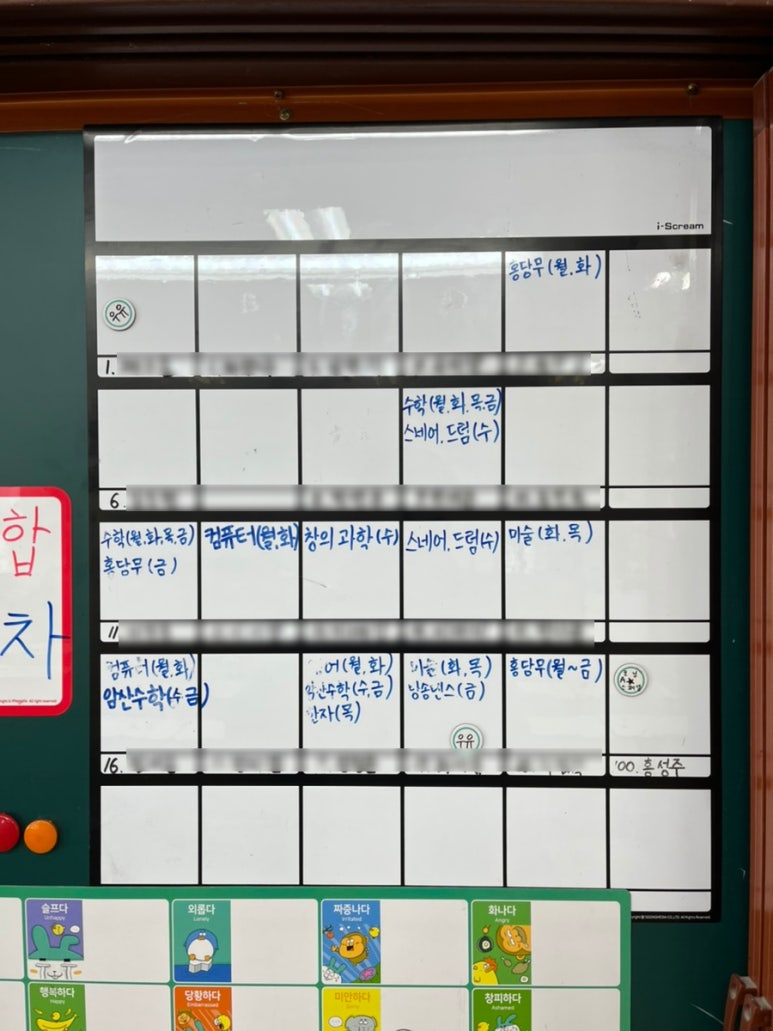 i-Scream
홍당무(월.화)
유유
1.
수학(월.화.목.금)
스네어.드럼(수)
6.
수학(월.화.목.금)
홍당무(금)
컴퓨터(월.화)
창의과학(수)
스네어.드럼(수)
미술(화.목)
11
합
차
컴퓨터(월,화)
암산수학(수금)
어(월,화)
암산수학(수,금)
한자(목)
미술(화,목)
홍당무(월~금)
우유
16.
'00.홍성주
슬프다
Unhappy
외롭다
Lonely
짜증나다
Irritated
화나다
Angry
행복하다
Happy
당황하다
Embarrassed
미안하다
Sorry
창피하다
Ashamed